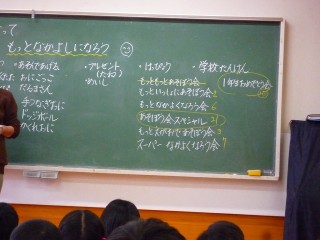 って
もっとなかよしになろう
・あそんであげる
おにごっこ
だるまさん
手つなぎおに
ドッジボール
かくれおに
・プレゼント
(たね)
・めいし
・はっぴょう
・学校たんけん
もっともっとあそぼう会
もっといっしょにあそぼう会 2
もっとなかよくなろう会 6
あそぼう会スペシャル 21
もっとえがおであそぼう会 2
スーパーなかよくなろう会 7